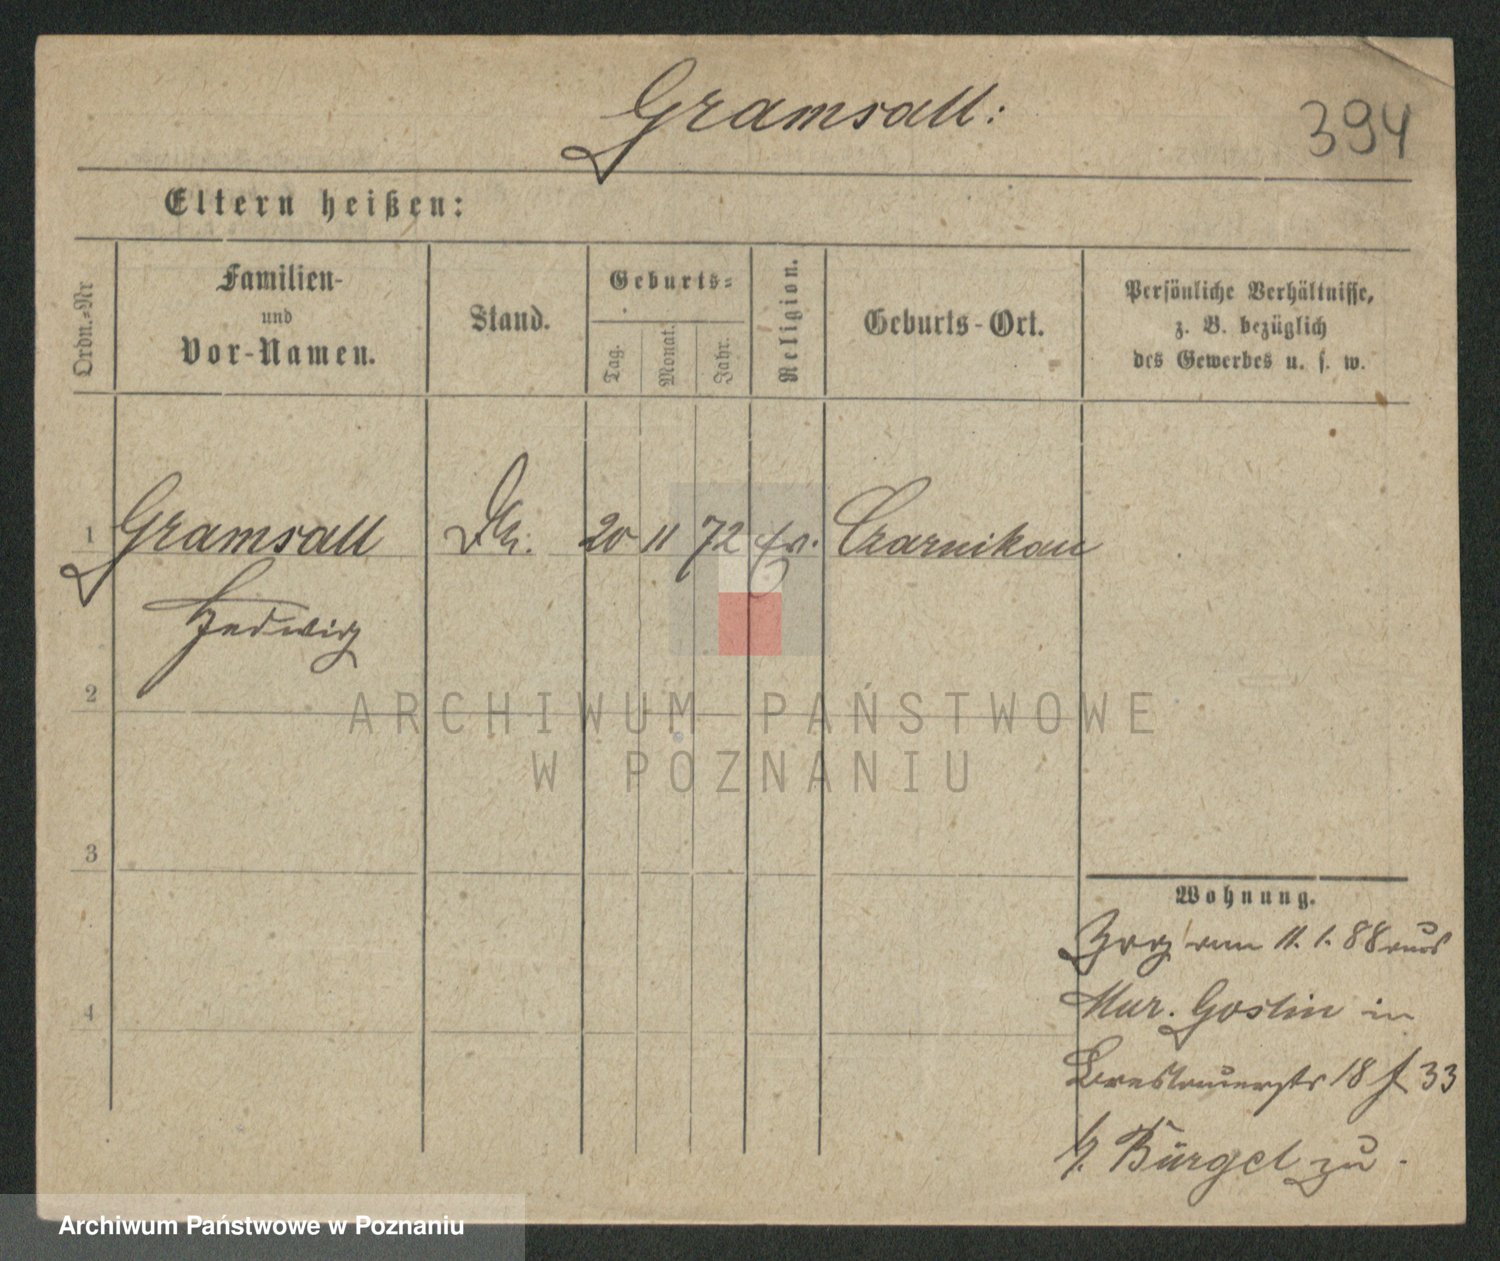 Gramsall:
394
Eltern heißen:
Ordn.=Nr
Familien-
und
Vor-Namen.
Stand.
Geburts=
Tag.
Monat.
Jahr.
Religion.
Geburts-Ort.
Persönliche Verhältnisse,
z. B. bezüglich
des Gewerbes u. s. w.
1 Gramsall 20 11 72 Ev. Czarnikau
Hedwig
2
ARCHIWUM PAŃSTWOWE
W POZNANIU
3
4
Wohnung.
Zog am 11. 1. 88 aus
Mur. Goslin in
18 33
b/. Bürgel zu.
Archiwum Państwowe w Poznaniu